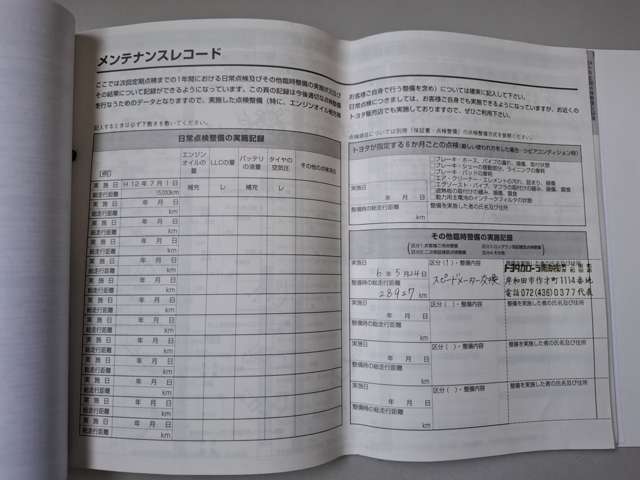 メンテナンスレコード
ここでは次回定期点検までの1年間における日常点検及びその他臨時整備の実施状況及び
その結果について記録ができるようになっています。この頁の記録は今後適切な点検整備
を行なうためのデータとなりますので、実施した点検整備（特に、エンジンオイル補充等
記入するときは必ず下敷きを敷いてください。
日常点検整備の実施記録
エンジンオイルの量
LLCの量
バッテリの液量
タイヤの空気圧
その他の点検項目
［例］
実施日 H12年7月1日 補充 レ 補充 レ
総走行距離
実施日 年 月 日
総走行距離 km
実施日 年 月 日
総走行距離 km
実施日 年 月 日
総走行距離 km
実施日 年 月 日
総走行距離 km
実施日 年 月 日
総走行距離 km
実施日 年 月 日
総走行距離 km
実施日 年 月 日
総走行距離 km
実施日 年 月 日
総走行距離 km
実施日 年 月 日
総走行距離 km
実施日 年 月 日
総走行距離 km
実施日 年 月 日
総走行距離 km
お客様ご自身で行う整備を含め）については確実に記入して下さい。
日常点検につきましては、お客様ご自身でも実施できるようになっていますが、お近くの
トヨタ販売店でも実施しておりますので、ぜひご利用下さい。
点検項目については別冊（保証書・点検整備）の点検整備方式を参照ください。
トヨタが指定する6か月ごとの点検（厳しい使われ方をした場合・シビアコンディション時）
実施日
年 月 日
整備時の総走行距離
km
・ブレーキ・ホース、パイプの漏れ、損傷、取付状態
整備を実施した者の氏名及び住所
その他臨時整備の実施記録
実施日
6年5月24日
整備時の総走行距離
28927 km
区分（1）・整備内容
スピードメーター交換
岸和田市作才町1114番地
電話072(436)0377代表
実施日
年 月 日
整備時の総走行距離
km
区分（ ）・整備内容
整備を実施した者の氏名及び住所
実施日
年 月 日
整備時の総走行距離
km
区分（ ）・整備内容
整備を実施した者の氏名及び住所
実施日
年 月 日
整備時の総走行距離
km
区分（ ）・整備内容
整備を実施した者の氏名及び住所